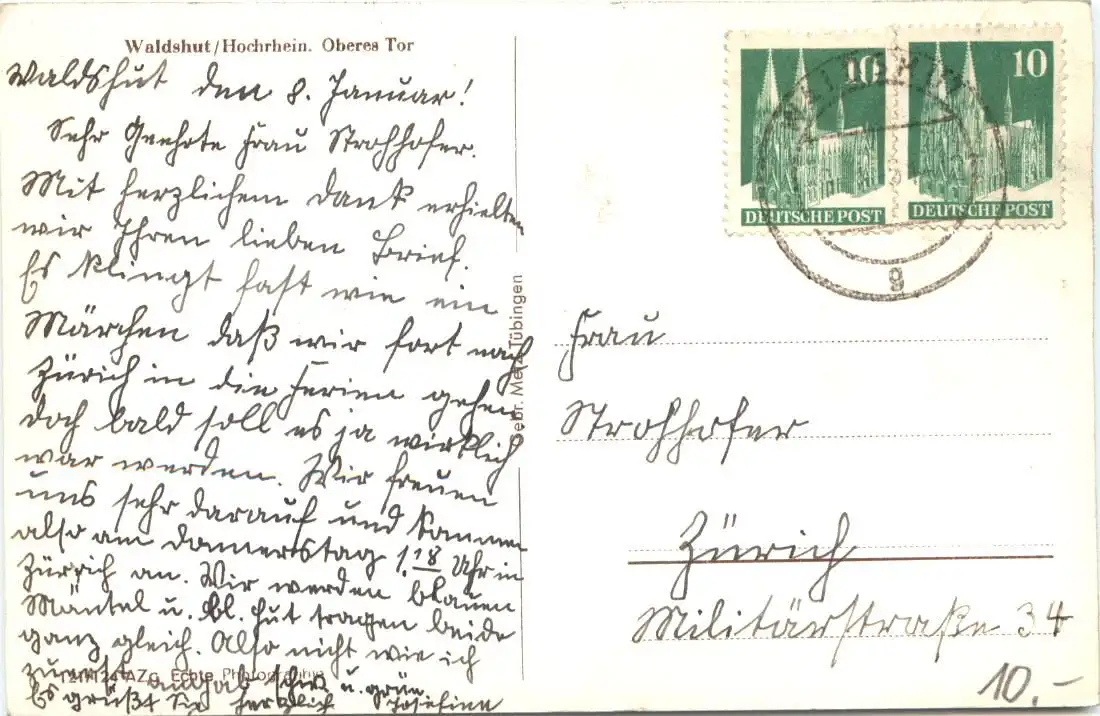 Waldshut/Hochrhein. Oberes Tor
Waldshut den 8. Januar!
Sehr Geehrte Frau Strohhofer.
Mit herzlichem Dank erhielten
wir Ihren lieben Brief.
Es klingt fast wie ein
Märchen daß wir fort nach
Zürich in die Ferien gehen
doch bald soll es ja wirklich
war werden. Wir freuen
uns sehr darauf und kommen
also am Donnerstag 1.18 Uhr in
Zürich an. Wir werden blauen
Mäntel u. bl. Hut tragen beide
ganz gleich. Also nicht wie ich
zuerst angab schw. u. grün
Es grüßt Sie herzlich Josefine
Gebr. Metz, Tübingen
Echte Photographie
10
DEUTSCHE POST
10
DEUTSCHE POST
g
Frau
Strohhofer
Zürich
Militärstraße 34
10.-